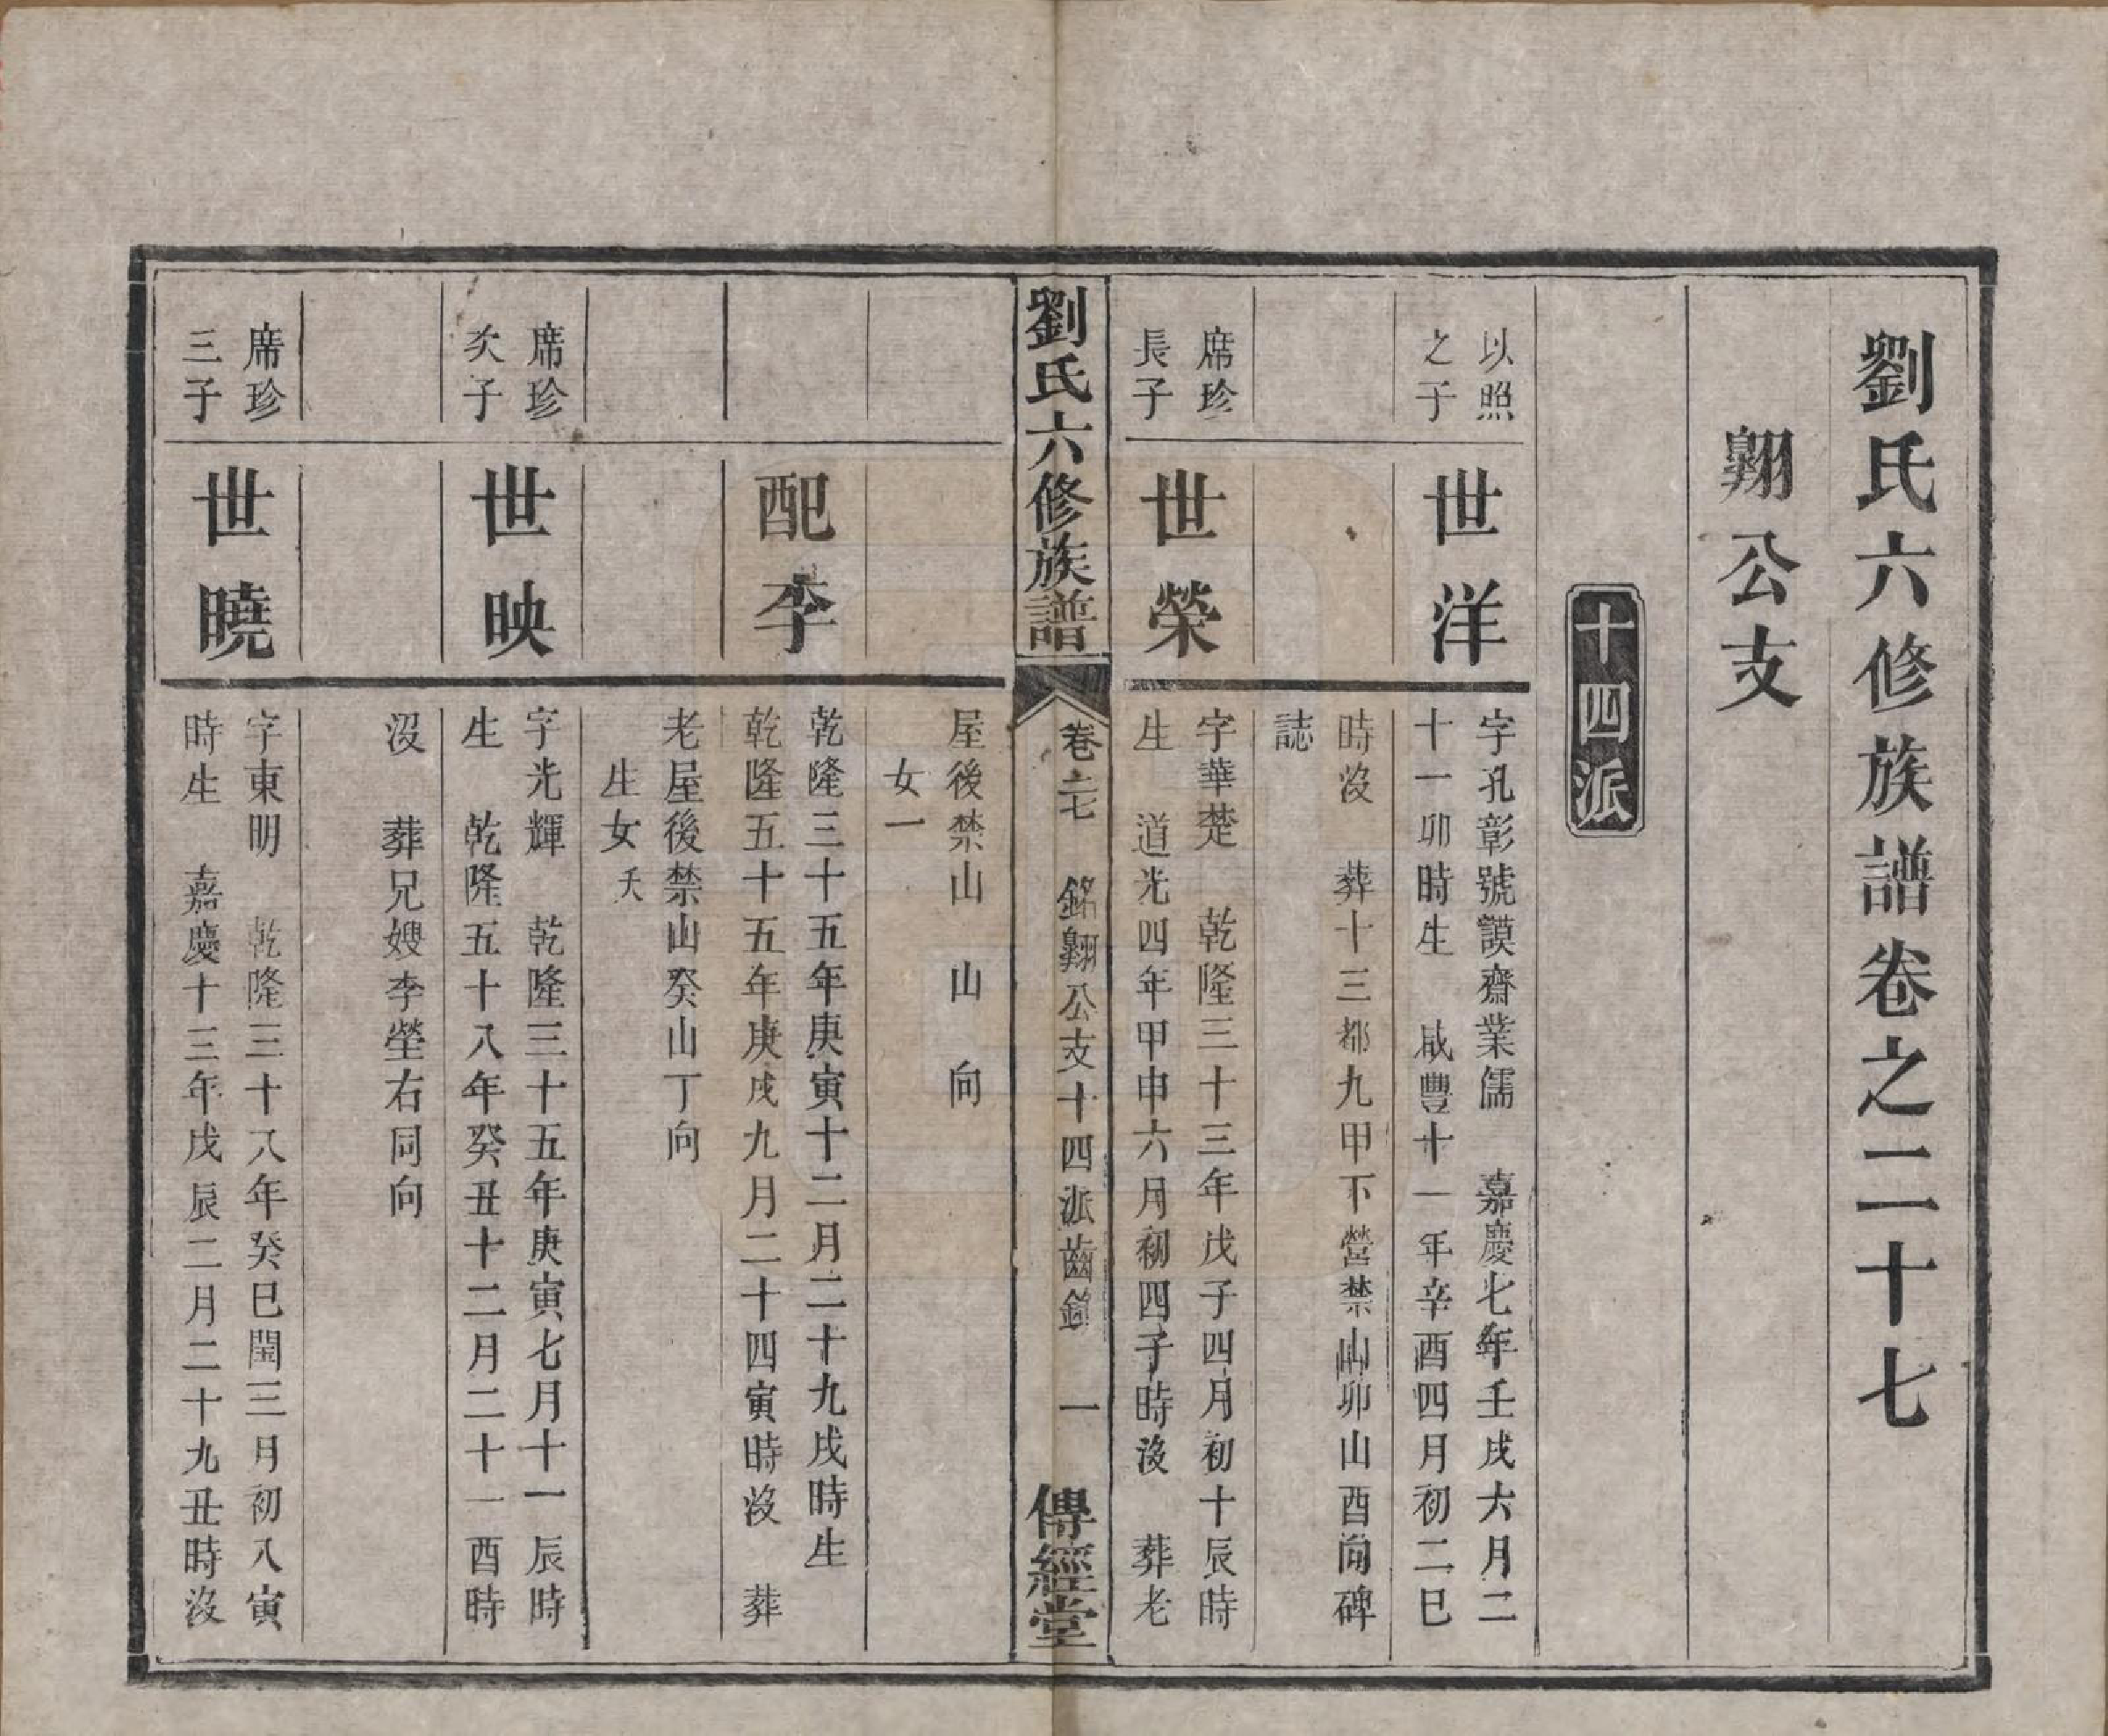 劉氏六修族譜卷之二十七
翱公支
十四派
以照
之子
世洋
字孔彰號謨齋業儒　嘉慶七年壬戌六月二
十一卯時生　咸豐十一年辛酉四月初二巳
時沒　葬十三都九甲下營禁山卯山酉向碑
誌
席珍
長子
世榮
字華楚　乾隆三十三年戊子四月初十辰時
生　道光四年甲申六月初四子時沒　葬老
劉氏六修族譜
卷二七　銘翱公支十四派齒錄　一
傳經堂
屋後禁山　山　向
女一
配李
乾隆三十五年庚寅十二月二十九戌時生
乾隆五十五年庚戌九月二十四寅時沒　葬
老屋後禁山癸山丁向
生女夭
席珍
次子
世映
字光輝　乾隆三十五年庚寅七月十一辰時
生　乾隆五十八年癸丑十二月二十一酉時
沒　葬兄嫂李塋右同向
席珍
三子
世曉
字東明　乾隆三十八年癸巳閏三月初八寅
時生　嘉慶十三年戊辰二月二十九丑時沒